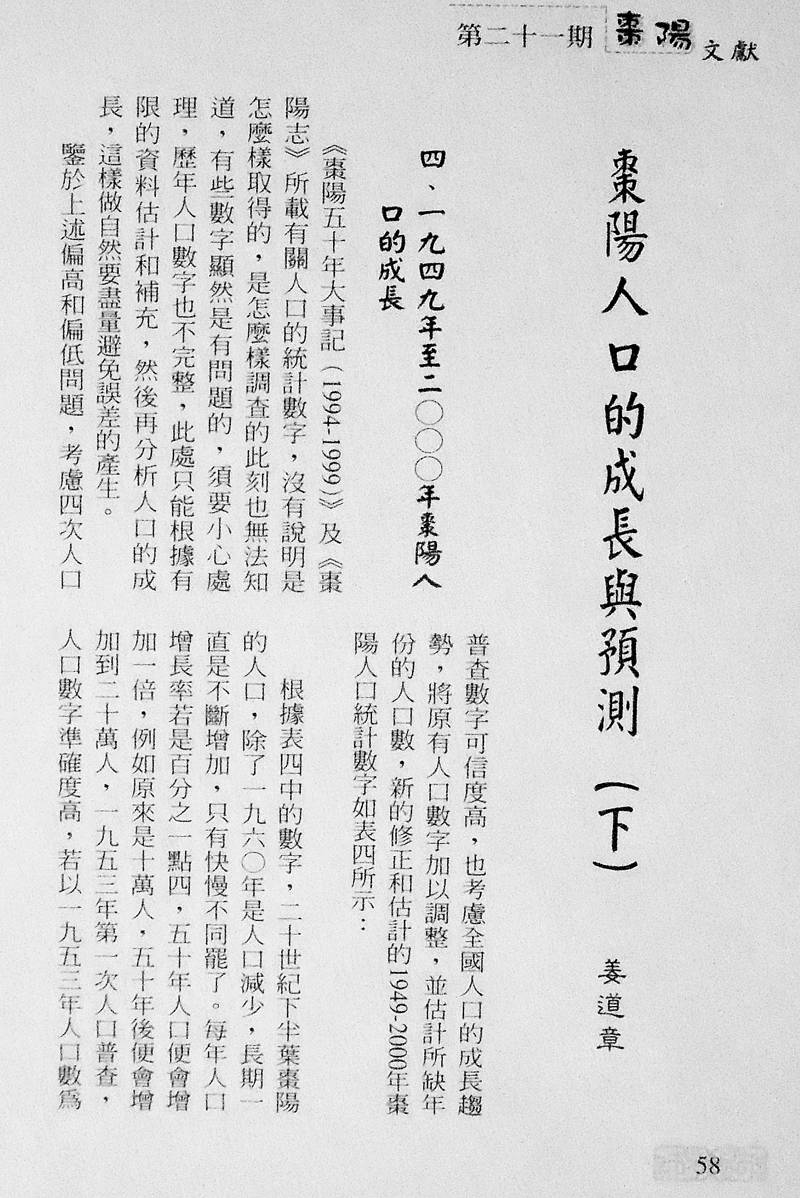 第二十一期 棗陽文獻
棗陽人口的成長與預測（下）
姜道章
四、一九四九年至二〇〇〇年棗陽人
口的成長
《棗陽五十年大事記（1994-1999)》及《棗
陽志》所載有關人口的統計數字，沒有說明是
怎麼樣取得的，是怎麼樣調查的此刻也無法知
道，有些數字顯然是有問題的，須要小心處
理，歷年人口數字也不完整，此處只能根據有
限的資料估計和補充，然後再分析人口的成
長，這樣做自然要盡量避免誤差的產生。
鑒於上述偏高和偏低問題，考慮四次人口
普查數字可信度高，也考慮全國人口的成長趨
勢，將原有人口數字加以調整，並估計所缺年
份的人口數，新的修正和估計的1949-2000年棗
陽人口統計數字如表四所示：
根據表四中的數字，二十世紀下半葉棗陽
的人口，除了一九六〇年是人口減少，長期一
直是不斷增加，只有快慢不同罷了。每年人口
增長率若是百分之一點四，五十年人口便會增
加一倍，例如原來是十萬人，五十年後便會增
加到二十萬人，一九五三年第一次人口普查，
人口數字準確度高，若以一九五三年人口數為
58